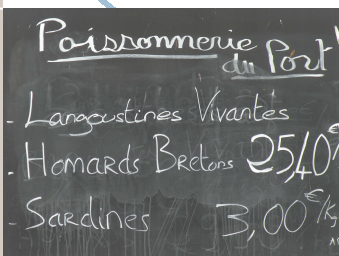 Poissonnerie
du Port
- Langoustines Vivantes
- Homards Bretons 25,40€
- Sardines 3,00€/Kg